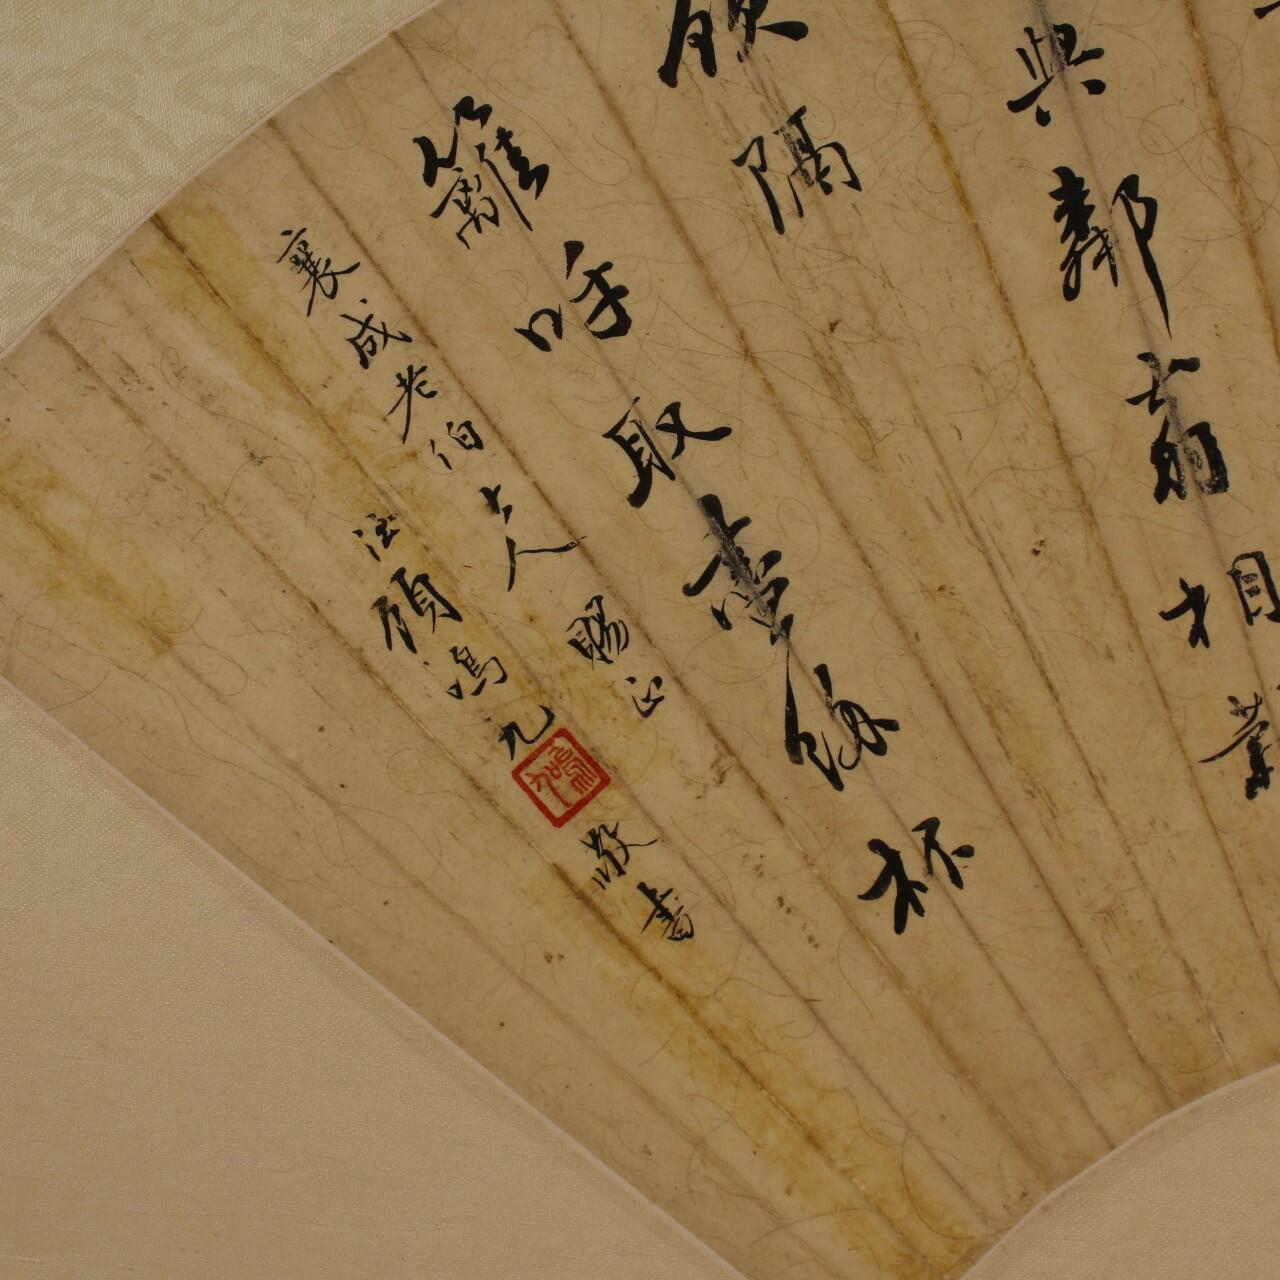 與鄰翁相對
飲隔
籬呼取盡餘杯
襄成老伯大人賜正
顧鳴九敬書